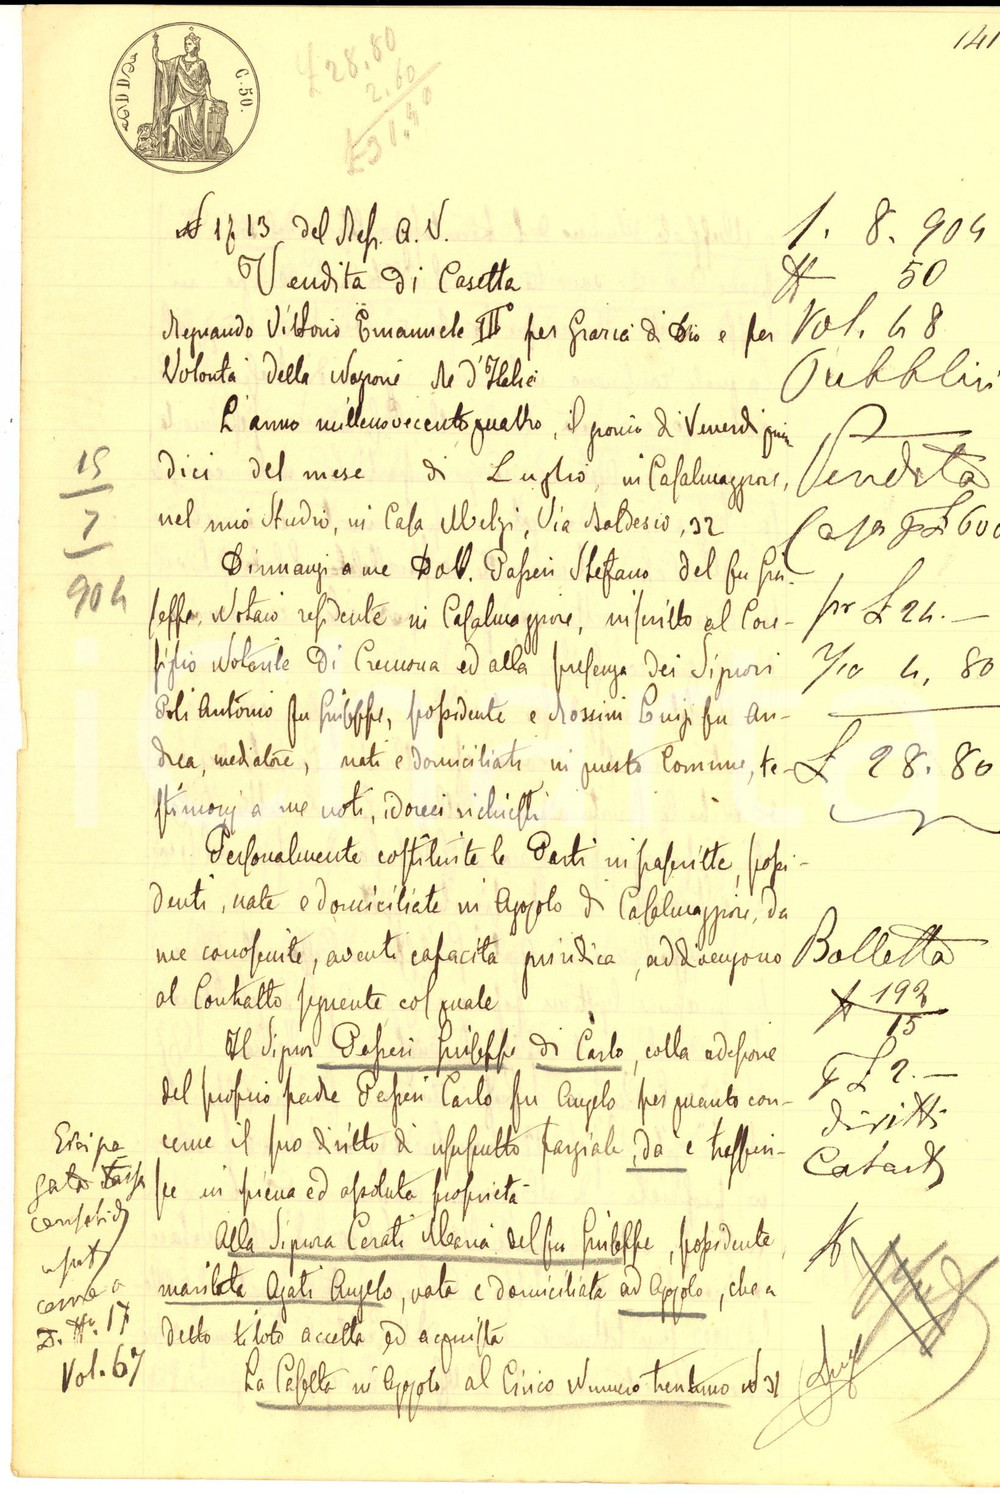 141
C. 50.
£ 28.80
2.60
£ 31.40
N 1713 del Rep. A. V.
Vendita di Casetta
Regnando Vittorio Emanuele III° per Grazia di Dio e per
Volontà della Nazione Re d'Italia
L'anno millenovecentoquattro, il giorno di Venerdi quin
dici del mese di Luglio, in Casalmaggiore,
nel mio Studio, in Casa Melzi, Via Baldesio, 32
Dinnanzi a me Dott. Passeri Stefano del fu Giu-
seppe, Notaio residente in Casalmaggiore, inscritto al Con-
siglio Notarile di Cremona ed alla presenza dei Signori
Poli Antonio fu Giuseppe, possidente e Rossini Luigi fu An-
drea, mediatore, nati e domiciliati in questo Comune, te-
stimonj a me noti, idonei richiesti
Personalmente costituite le Parti infrascritte, possi-
denti, nate e domiciliate in Agojolo di Casalmaggiore, da
me conosciute, aventi capacità giuridica, addivengono
al Contratto seguente col quale
Il Signor Passeri Giuseppe di Carlo, colla adesione
del proprio padre Passeri Carlo fu Angelo per quanto con-
cerne il suo diritto di usufrutto parziale, dà e trasferi-
sce in piena ed assoluta proprietà
Alla Signora Cerati Maria del fu Giuseppe, possidente,
maritata Agati Angelo, nata e domiciliata ad Agojolo, che a
detto titolo accetta ed acquista
La Casetta in Agojolo al Civico Numero trentuno N 31
15
7
904
1. 8. 904
N 50
Vol. 48
Pubblici
Vendita
Casa £ 600
pr £ 24.—
1/10 4, 80
£ 28.80
Bolletta
N 192
15
£ 2.—
diritti
Catast
Vol. 67